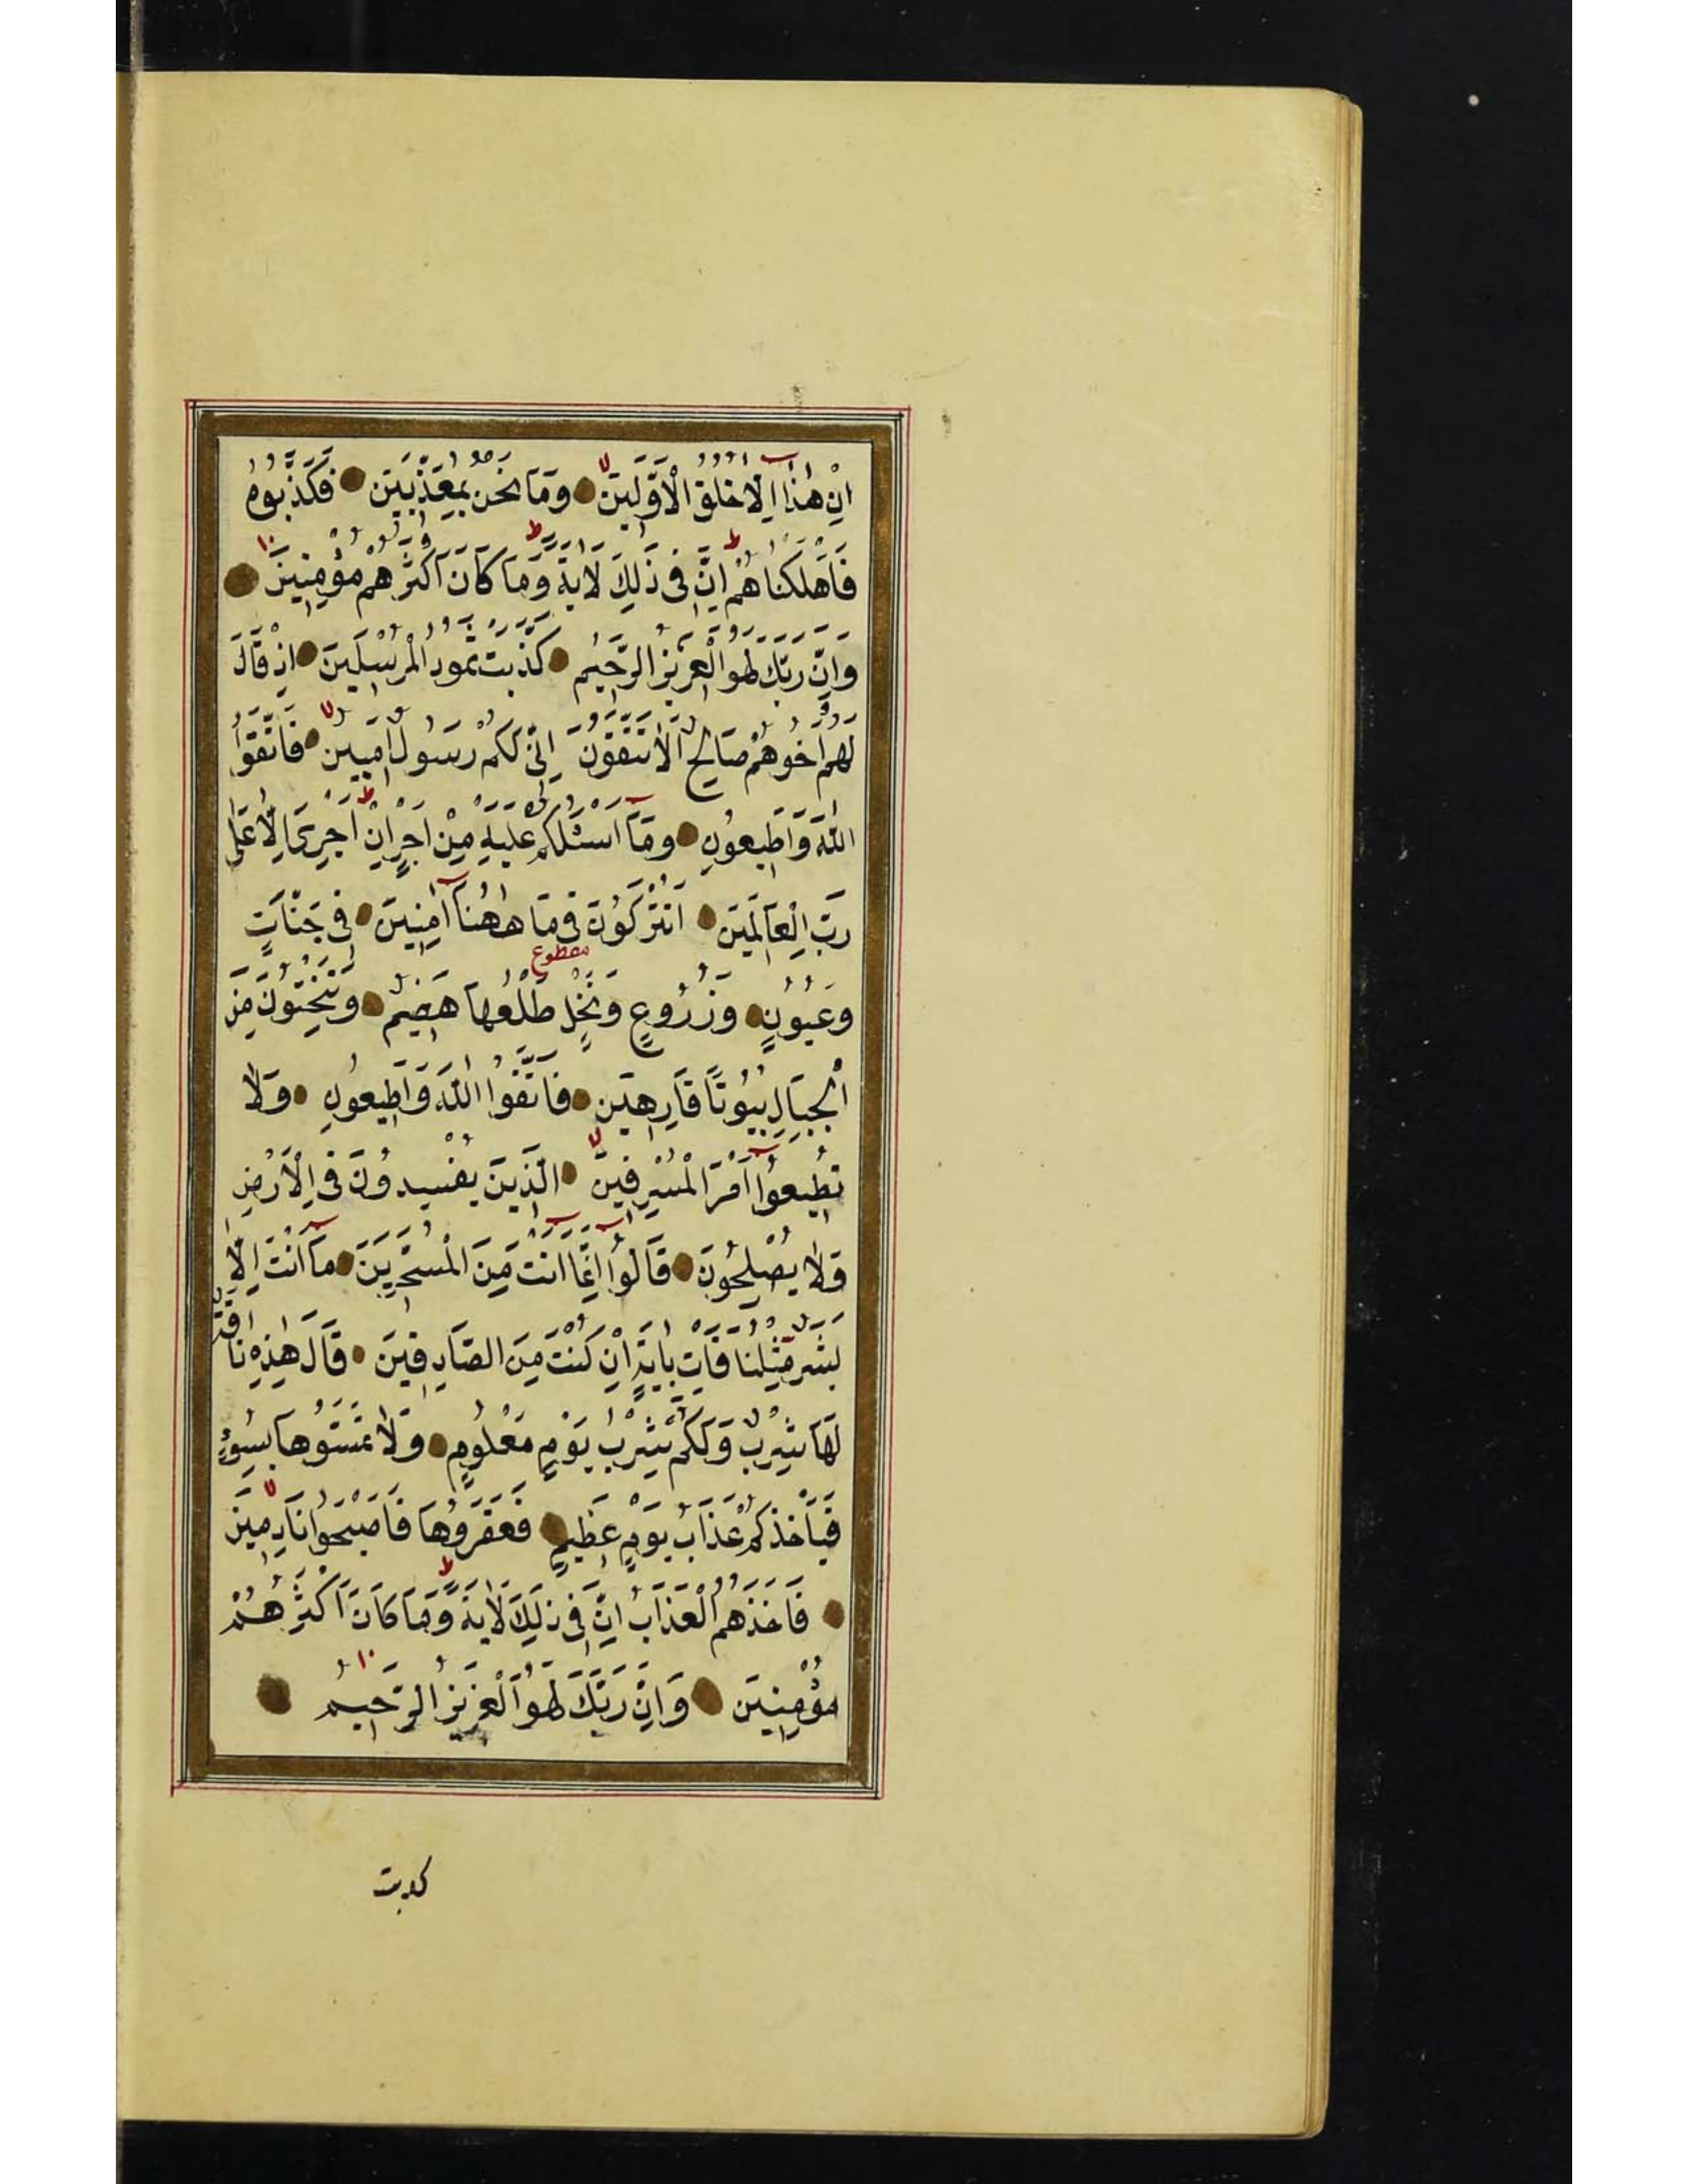 اِنْ هٰذَا اِلَّا خُلُقُ الْاَوَّلِينَ وَمَا نَحْنُ بِمُعَذَّبِينَ فَكَذَّبُوهُ
فَاَهْلَكْنَاهُمْ اِنَّ فِى ذَلِكَ لَاٰيَةً وَمَا كَانَ اَكْثَرُهُمْ مُؤْمِنِينَ
وَاِنَّ رَبَّكَ لَهُوَ الْعَزِيزُ الرَّحِيمُ كَذَّبَتْ ثَمُودُ الْمُرْسَلِينَ اِذْ قَالَ
لَهُمْ اَخُوهُمْ صَالِحٌ اَلَا تَتَّقُونَ اِنِّى لَكُمْ رَسُولٌ اَمِينٌ فَاتَّقُوا
اللّٰهَ وَاَطِيعُونِ وَمَآ اَسْئَلُكُمْ عَلَيْهِ مِنْ اَجْرٍ اِنْ اَجْرِىَ اِلَّا عَلٰى
رَبِّ الْعَالَمِينَ اَتُتْرَكُونَ فِى مَا هٰهُنَآ اٰمِنِينَ فِى جَنَّاتٍ
مقطوع
وَعُيُونٍ وَزُرُوعٍ وَنَخْلٍ طَلْعُهَا هَضِيمٌ وَتَنْحِتُونَ مِنَ
الْجِبَالِ بُيُوتًا فَارِهِينَ فَاتَّقُوا اللّٰهَ وَاَطِيعُونِ وَلَا
تُطِيعُوٓا اَمْرَ الْمُسْرِفِينَ الَّذِينَ يُفْسِدُونَ فِى الْاَرْضِ
وَلَا يُصْلِحُونَ قَالُوٓا اِنَّمَآ اَنْتَ مِنَ الْمُسَحَّرِينَ مَآ اَنْتَ اِلَّا
بَشَرٌ مِثْلُنَا فَاْتِ بِاٰيَةٍ اِنْ كُنْتَ مِنَ الصَّادِقِينَ قَالَ هٰذِهِ نَاقَةٌ
لَهَا شِرْبٌ وَلَكُمْ شِرْبُ يَوْمٍ مَعْلُومٍ وَلَا تَمَسُّوهَا بِسُوٓءٍ
فَيَاْخُذَكُمْ عَذَابُ يَوْمٍ عَظِيمٍ فَعَقَرُوهَا فَاَصْبَحُوا نَادِمِينَ
فَاَخَذَهُمُ الْعَذَابُ اِنَّ فِى ذٰلِكَ لَاٰيَةً وَمَا كَانَ اَكْثَرُهُمْ
مُؤْمِنِينَ وَاِنَّ رَبَّكَ لَهُوَ الْعَزِيزُ الرَّحِيمُ
كذبت